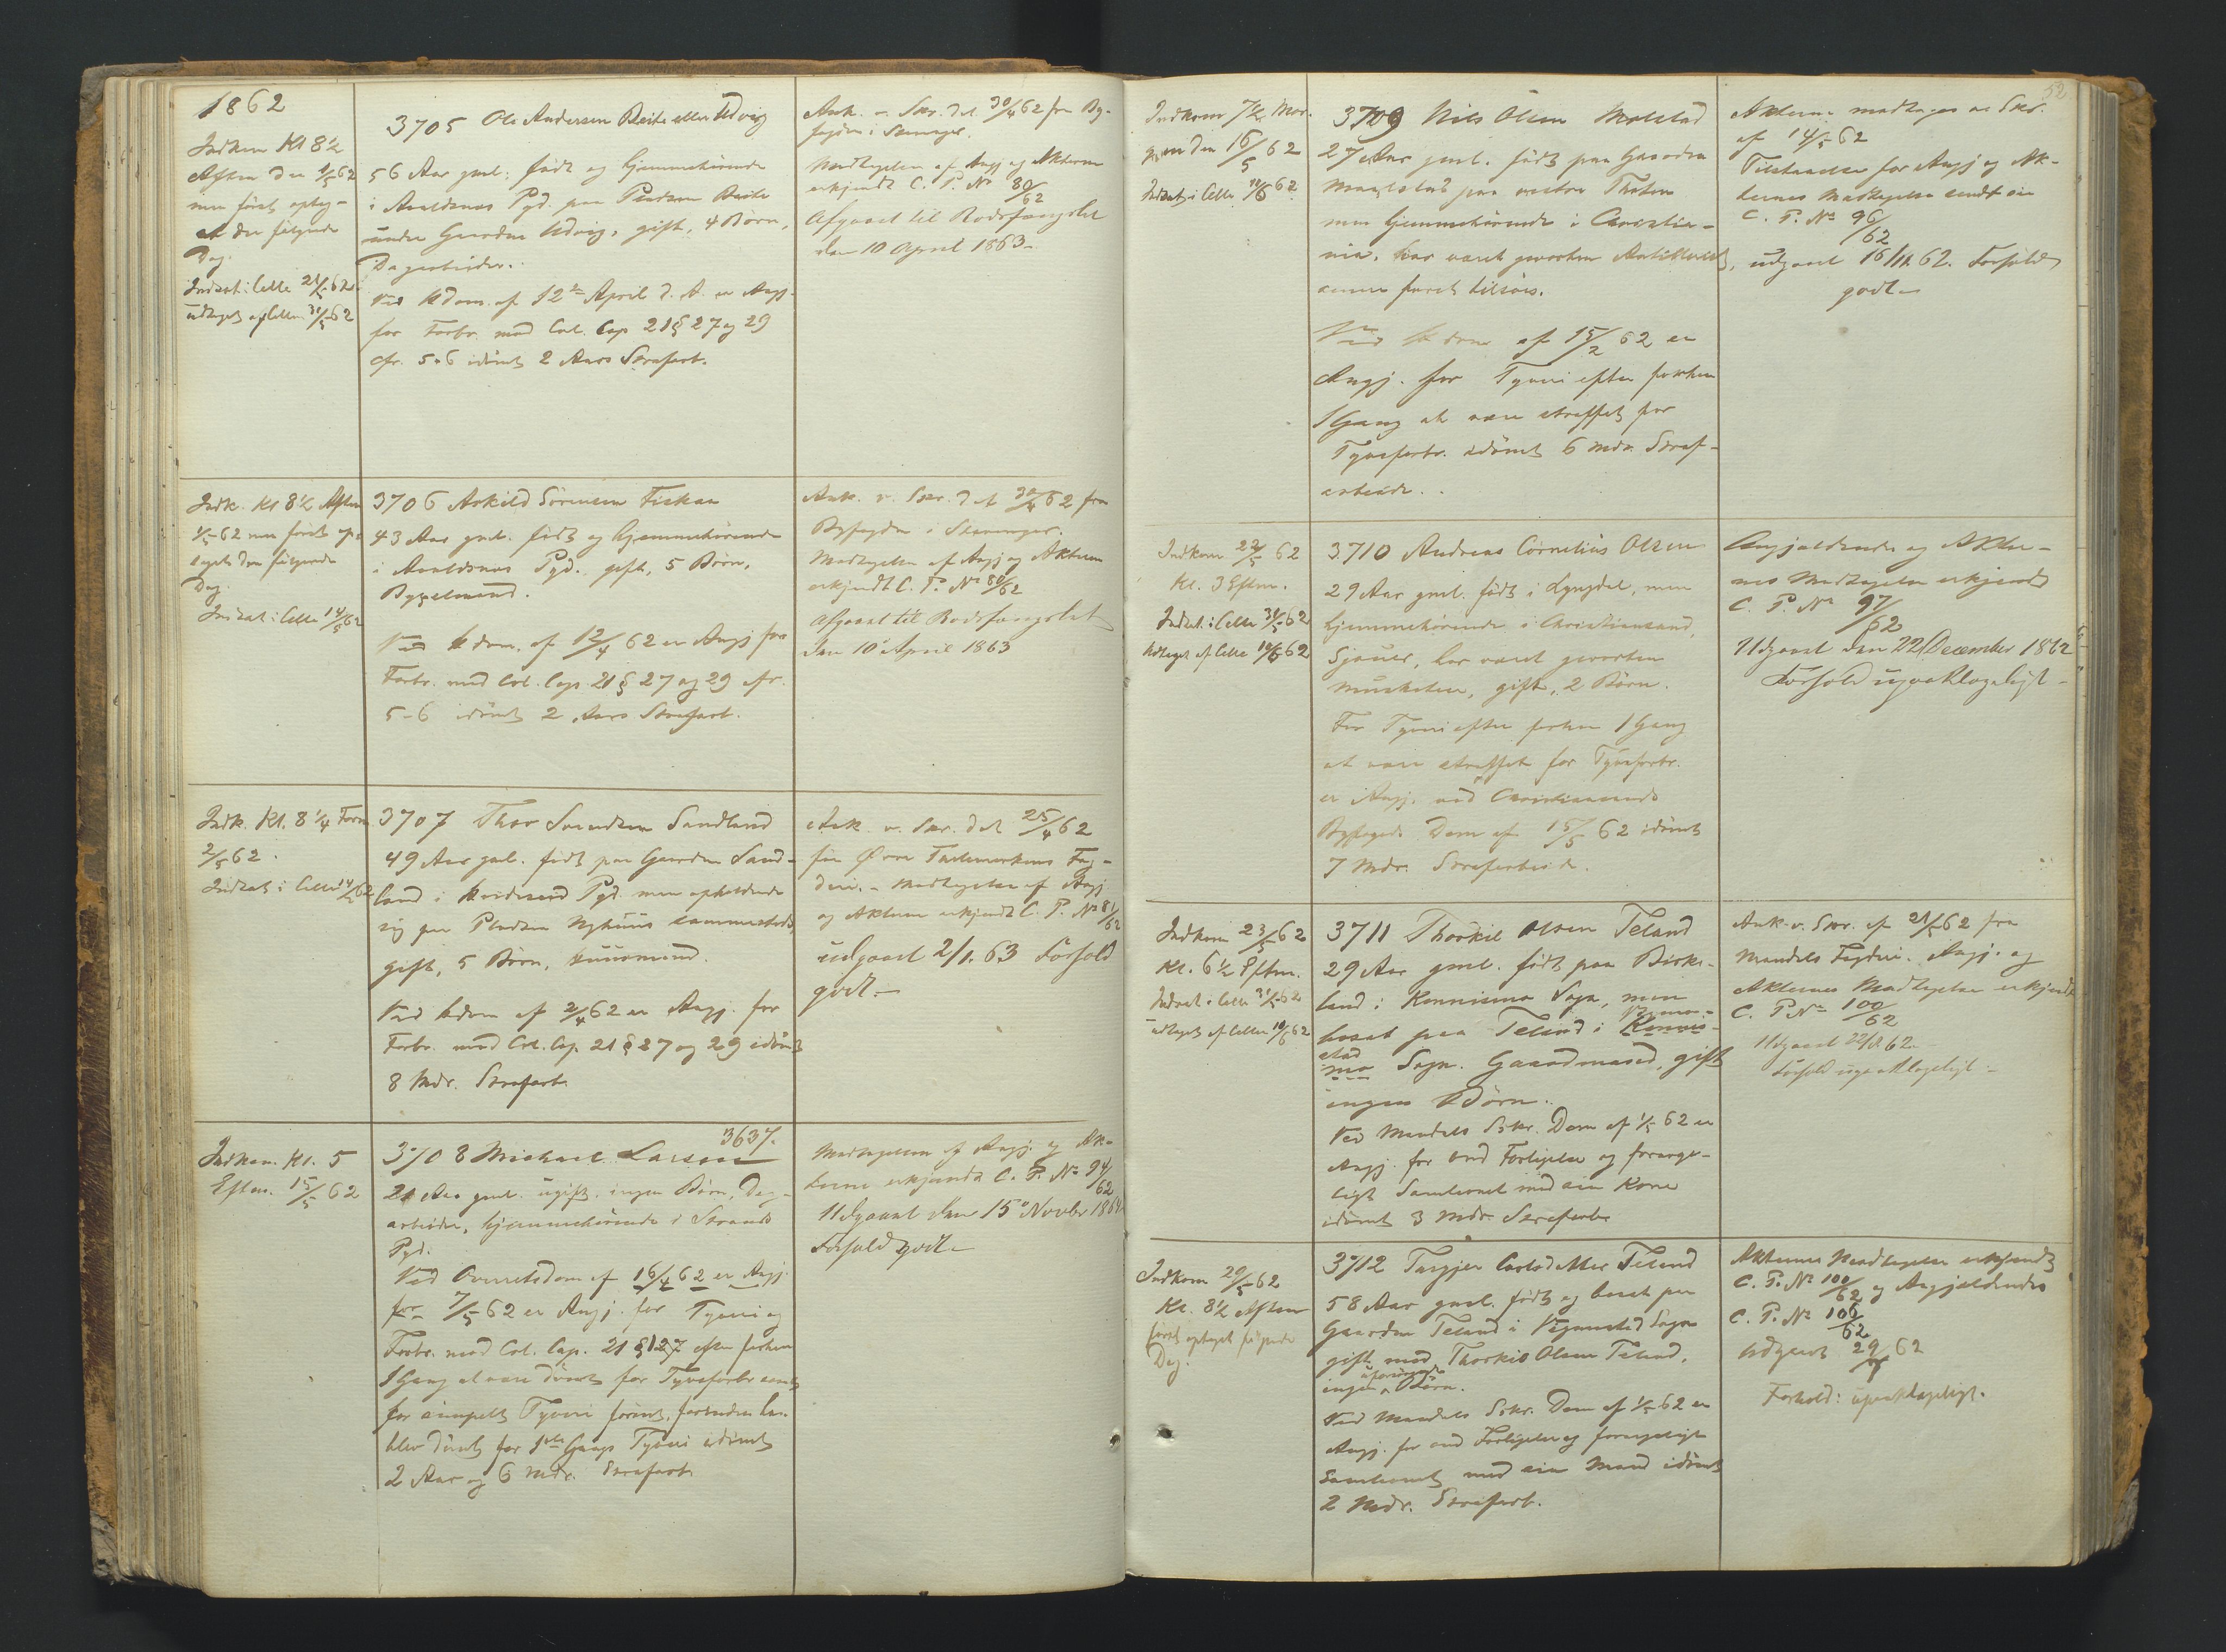 1862
Indkom Kl 8½
Aften den 1/5 62
men først optag-
et den følgende
Dag.
Indsat i Celle 21/5 62
udtaget af Cellen 31/5 62
3705 Ole Andersen Beite eller Udvig
56 Aar gml. født og hjemmehørende
i Avaldsnæs Pgd. paa Pladsen Beite
under Gaarden Udvig, gift, 4 Børn,
Dagarbeider.
Ved Hdom. af 12te April d. A. er Angj.
for Forbr. mod Crl. Cap 21 § 27 og 29
cfr. 5-6 idømt 2 Aars Strafarb.
Ank. v. Skr. dat 30/4 62 fra By-
fogden i Stavanger.
Modtagelsen af Angj og Akterne
erkjendt C. P. No 80/62
Afgaaet til Bodsfængslet
den 10 April 1863.
Indk. Kl 8½ Aften
1/5 62 men først op-
taget den følgende
Dag.
Indsat i Celle 14/5 62
3706 Askild Sørensen Fiskaa
43 Aar gml. født og hjemmehørende
i Avaldsnæs Pgd. gift, 5 Børn,
Bygselmand.
Ved Hdom. af 12/4 62 er Angj for
Forbr. mod Crl. Cap. 21 § 27 og 29 cfr.
5-6 idømt 2 Aars Strafarb.
Ank. v. Skr. dat 30/4 62 fra
Byfogden i Stavanger.
Modtagelsen af Angj og Akterne
erkjendt C. P. No 80/62
Afgaaet til Bodsfængslet
den 10 April 1863
Indk. Kl. 8¼ Form
2/5 62.
Indsat i Celle 14/5 62
3707 Thor Svendsen Sandland
49 Aar gml. født paa Gaarden Sand-
land i Hvideseid Pgd. men opholdende
sig paa Pladsen Nyhuus sammesteds,
gift, 5 Børn, Huusmand.
Ved Hdom af 2/4 62 er Angj. for
Forbr. mod Crl. Cap. 21 § 27 og 29 idømt
8 Mdr. Strafarb.
Ank. v. Skr. dat 25/4 62
fra Øvre Tellemarkens Fog-
deri. - Modtagelse af Angj
og Akterne erkjendt C. P. No 81/62
udgaaet 2/1. 63 Forhold
godt.
Indkom. Kl. 5
Efterm. 15/5 62
3637.
3708 Michael Larsen
21 Aar gml. ugift. ingen Børn, Dag-
arbeider, hjemmehørende i Strands
Pgd.
Ved Overretsdom af 16/4 62 er Angj.
for 7/5 62 er Angj. for Tyveri og
Forbr. mod Crl. Cap. 21 § 27 efter forhen
1 Gang at være dømt for Tyvsforbr samt
for simpelt Tyveri forint, forinden han
blev dømt for 1ste Gangs Tyveri idømt
2 Aar og 6 Mdr. Strafarb.
Modtagelsen af Angj. og Ak-
terne erkjendt C. P. No 94/62
Udgaaet den 15 Novbr 1864
Forhold godt
52
Indkom 7½ Mor-
gen den 16/5 62
Indsat i Celle 10/6 62
3709 Nils Olsen Molstad
27 Aar gml. født paa Gaarden
Molstad paa vestre Thoten
men hjemmehørende i Christia-
nia, har været gevorben Artillerist,
senere faret tilsøes.
Ved Hdom af 15/2 62 er
Angj. for Tyveri efter forhen
1 Gang at være straffet for
Tyvsforbr. idømt 6 Mdr. Straf-
arbeide.
Akterne modtages ved Skr.
af 14/5 62
Tilstaaelse for Angj og Ak-
ternes Modtagelse sendt
C. P. No 96/62
udgaaet 16/11 62. Forhold
godt
Indkom 22/5 62
Kl. 3 Efterm.
Indsat i Celle 31/5 62
Udtaget af Celle 10/6 62
3710 Andreas Cornelius Olsen
29 Aar gml. født i Lyngdal, men
hjemmehørende i Christiansand,
Sjouer, har været gevorben
Musketeer, gift, 2 Børn.
For Tyveri efter forhen 1 Gang
at være straffet for Tyvsforbr.
er Angj. ved Christiansands
Byfogeds Dom af 15/5 62 idømt
7 Mdr. Strafarbeide.
Angjældendes og Akter-
nes Modtagelse erkjendt
C. P. No 97/62
Udgaaet den 22 December 1862
Forhold upaaklageligt
Indkom 23/5 62
Kl. 6½ Efterm.
Indsat i Celle 31/5 62
udtaget af Cellen 10/6 62
3711 Thorkil Olsen Teland
29 Aar gml. født paa Birke-
land i Konnismo Sogn, men
bosat paa Teland i Konnis-
mo Sogn. Gaardmand, gift
ingen Børn.
Ved Mandals Sskr. Dom af 1/5 62 er
Angj. for ond Forligelse og forarge-
ligt Samlevnet med sin Kone
idømt 3 Mdr. Strafarb.
Ank. v. Skr. af 21/5 62 fra
Mandals Fogderi. Angj. og
Akternes Modtagelse erkjendt
C. P. No 100/62
Udgaaet 22/8 62.
Forhold upaaklageligt
Indkom 20/5 62
Kl. 8½ Aften
først optaget følgende
Dag.
3712 Targjer Carlsdatter Teland
58 Aar gml. født og bosat paa
Gaarden Teland i Vigmostad Sogn
gift med Thorkil Olsen Teland,
ingen uforsørgede Børn.
Ved Mandals Sskr. Dom af 1/5 62 er
Angj. for ond Forligelse og forargeligt
Samlevnet med sin Mand idømt
2 Mdr. Strafarb.
Akternes Modtagelse erkjendt
C. P. No 100/62 og Angjældendes
C. P. No 106/62
Udgaaet 29/7 62
Forhold: upaaklageligt.